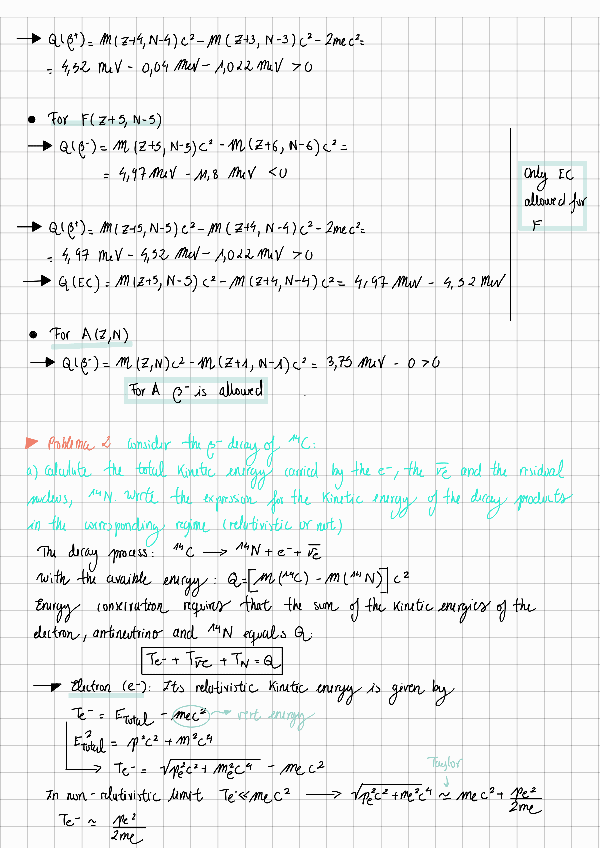 → Q(β⁺) = M(Z+4, N-4)c² - M(Z+3, N-3)c² - 2mec² =
= 4,52 MeV - 0,04 MeV - 1,022 MeV > 0
• For F(Z+5, N-5)
→ Q(β⁻) = M(Z+5, N-5)c² - M(Z+6, N-6)c² =
= 4,97 MeV - 11,8 MeV < 0
Only EC
allowed for
F
→ Q(β⁺) = M(Z+5, N-5)c² - M(Z+4, N-4)c² - 2mec² =
= 4,97 MeV - 4,52 MeV - 1,022 MeV > 0
→ Q(EC) = M(Z+5, N-5)c² - M(Z+4, N-4)c² = 4,97 MeV - 4,52 MeV
• For A(Z,N)
→ Q(β⁻) = M(Z,N)c² - M(Z+1, N-1)c² = 3,75 MeV - 0 > 0
For A β⁻ is allowed
▶ Problema 2. Consider the β⁻ decay of ¹⁴C:
a) Calculate the total kinetic energy carried by the e⁻, the ν̅e and the residual
nucleus, ¹⁴N. Write the expression for the kinetic energy of the decay products
in the corresponding regime (relativistic or not.)
The decay process: ¹⁴C → ¹⁴N + e⁻ + ν̅e
with the avaible energy: Q = [M(¹⁴C) - M(¹⁴N)] c²
Energy conservation requires that the sum of the kinetic energies of the
electron, antineutrino and ¹⁴N equals Q:
Te⁻ + Tν̅e + TN = Q
→ Electron (e⁻): Its relativistic kinetic energy is given by
Te⁻ = Etotal - mec² → rest energy
E²total = p²c² + m²c⁴
→ Te⁻ = √(pe²c² + me²c⁴) - mec²
Taylor
In non-relativistic limit Te⁻ ≪ mec² → √(pe²c² + me²c⁴) ≃ mec² + pe²/2me
Te⁻ ≃ pe²/2me